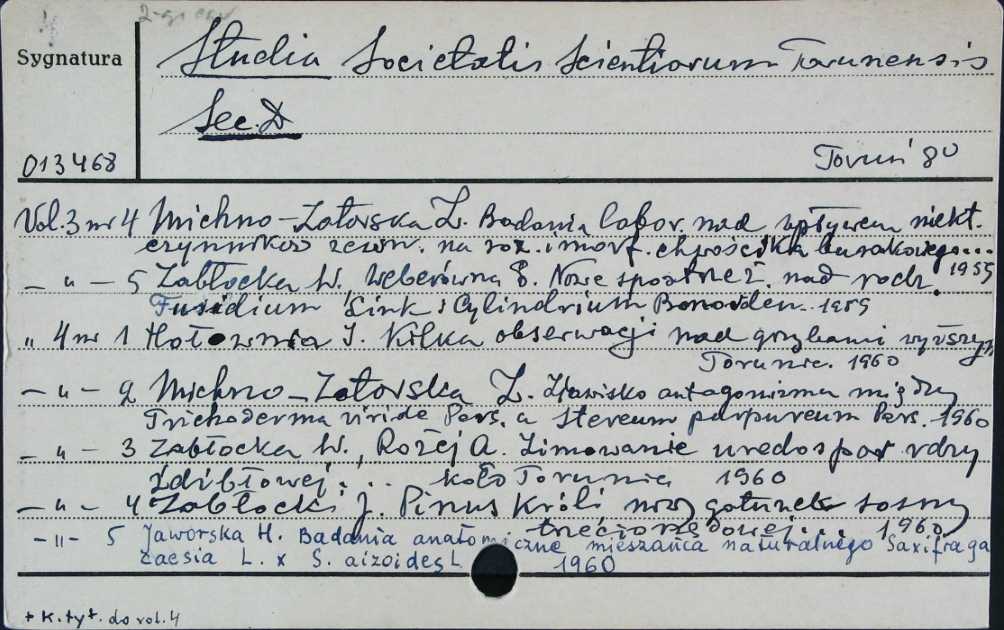 Sygnatura
Studia Societatis Scientiarum Torunensis
Sec. D
013468
Toruń 8º
Vol. 3 nr 4 Michno-Zatorska Z. Badania labor. nad wpływem niekt.
czynników zewn. na roz. i morf. chwościka burakowego...
1955
— „ — 5 Zabłocka W., Weberówna E. Nowe spostrzeż. nad rodz.
Fusidium Link i Cylindrium Bonorden. 1959
„ 4 nr 1 Hołownia I. Kilka obserwacji nad grzybami wyższymi
Torunia. 1960
— „ — 2 Michno-Zatorska Z. Zjawisko antagonizmu między
Trichoderma viride Pers. a Stereum purpureum Pers. 1960
— „ — 3 Zabłocka W., Rożej A. Zimowanie uredospor rdzy
źdźbłowej... koło Torunia 1960
— „ — 4 Zabłocki J. Pinus Króli nowy gatunek sosny
trzeciorzędowej... 1960
— „ — 5 Jaworska H. Badania anatomiczne mieszańca naturalnego Saxifraga
caesia L. x S. aizoides L 1960
+ K. tyt. do vol. 4